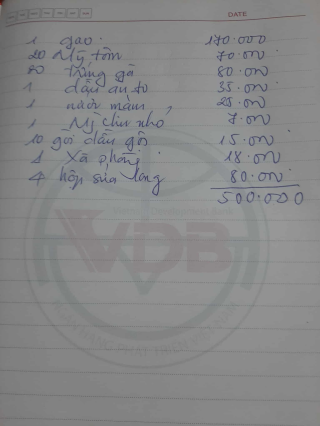 DATE
1 gạo 170.000
20 Mỹ tôm 70.000
80 trứng gà 80.000
1 dầu ăn to 35.000
1 nước mắm 25.000
1 Mì chín nhỏ 7.000
10 gói dầu gội 15.000
1 Xà phòng 18.000
4 hộp sữa long 80.000
500.000
VDB